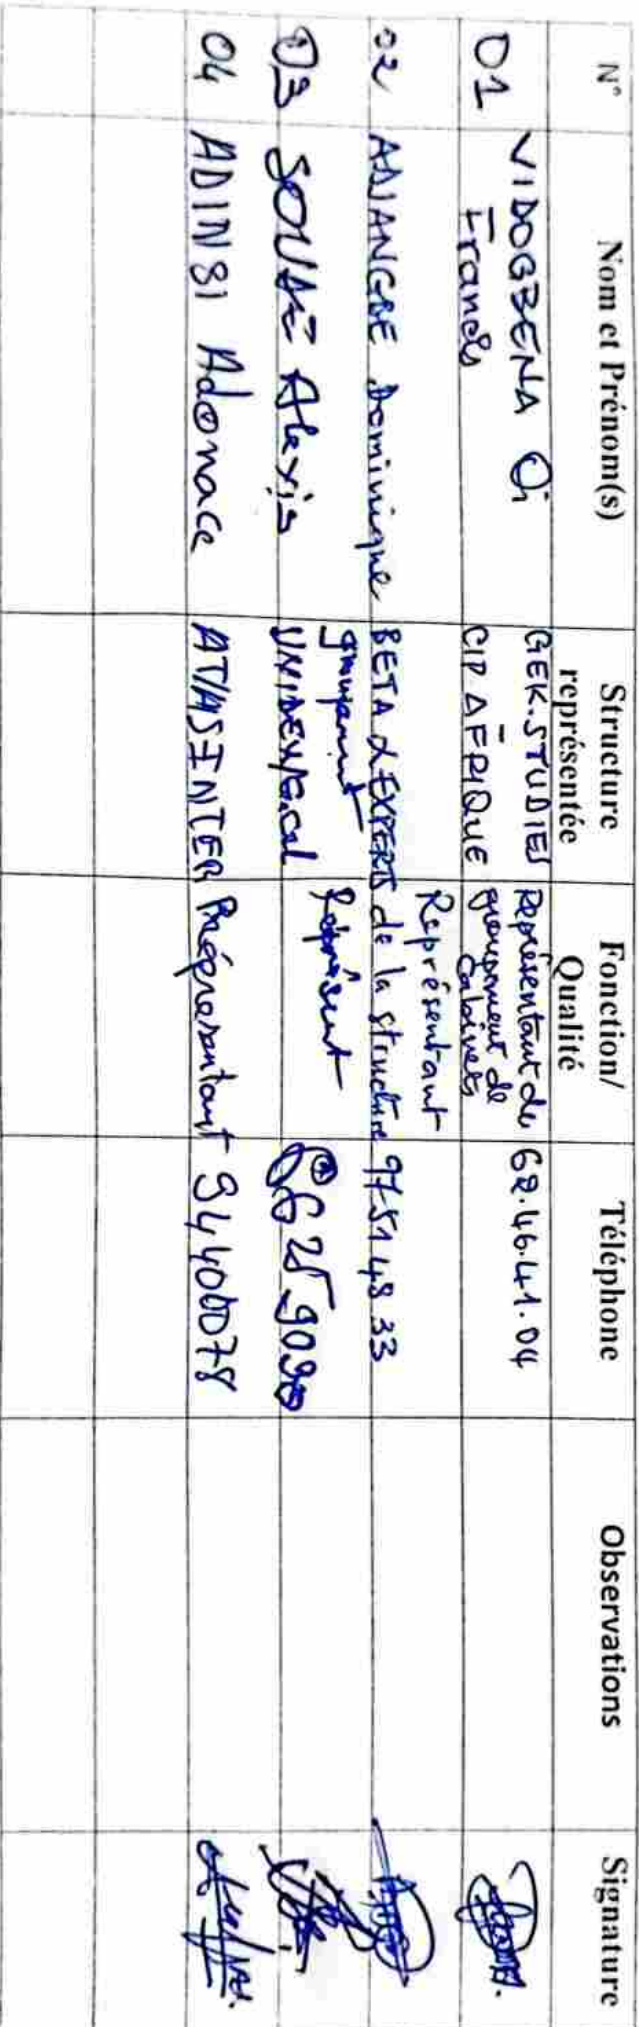 N° Nom et Prénom(s) Structure représentée Fonction/ Qualité Téléphone Observations Signature
01 VIDOGBENA Oi Francis GEK.STUDIES CIP AFRIQUE Représentant du groupement de Cabinets 62.46.41.04
02 ADJANGBE Dominique BETA & EXPERTS Représentant de la structure 97514833
03 Alexis groupement Représent 66259090
04 ADINSI Adonace ATMSINTER Représentant 94400078